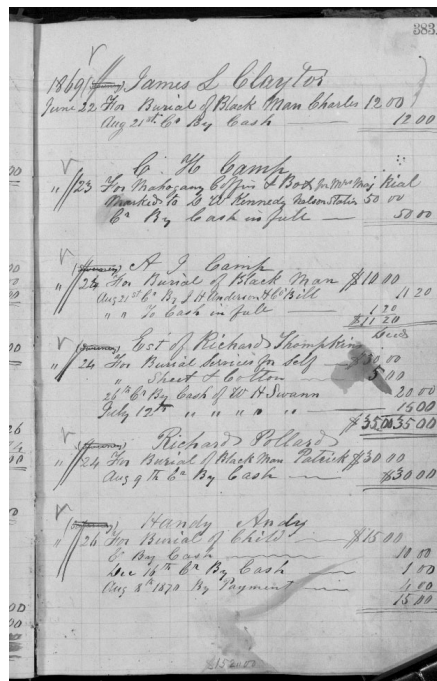 383
1869 James L Clayton
June 22 For Burial of Black Man Charles 12 00
Aug 21st Cr By Cash 12 00
C. H. Camp
" 23 For Mahogany Coffin & Box for Mrs Maj Kial
marked to D W Kennedy Nelson Station 50 00
Cr By Cash in full 50 00
A J Camp
" 24 For Burial of Black Man $10 00
Aug 21st Cr By J H Anderson & Co Bill 11 20
" " To Cash in full 1 20
$11 20
Est of Richard Thompkins
" 24 For Burial Services for Self $30 00
" Sheet & Cotton 5 00
26th Cr By Cash of W H Swann 20 00
July 12th " " " " " 15 00
$35 00 35 00
Richard Pollard
" 24 For Burial of Black Man Patrick $30 00
Aug 9th Cr By Cash $30 00
Handy Andy
" 26 For Burial of Child $15 00
Cr By Cash 10 00
Dec 16th Cr By Cash 1 00
Aug 8th 1870 By Payment 4 00
15 00